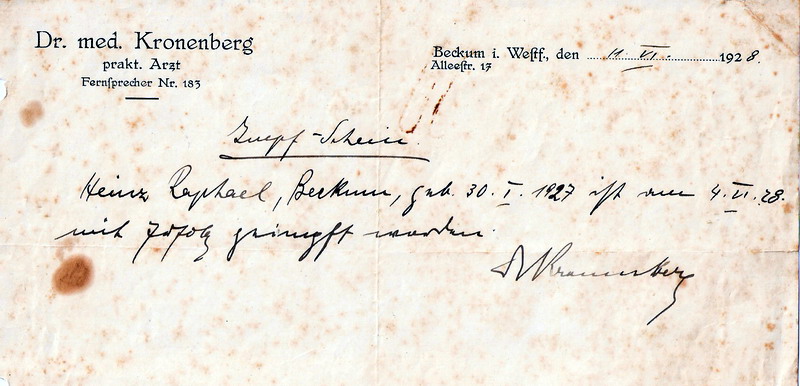 Dr. med. Kronenberg
prakt. Arzt
Fernsprecher Nr. 183
Beckum i. Westf., den 11. VI. 1928.
Alleestr. 17
Impf-Schein.
Heinz Raphael, Beckum, geb. 30. I. 1927 ist am 4. VI. 28.
mit Erfolg geimpft worden.
Dr Kronenberg